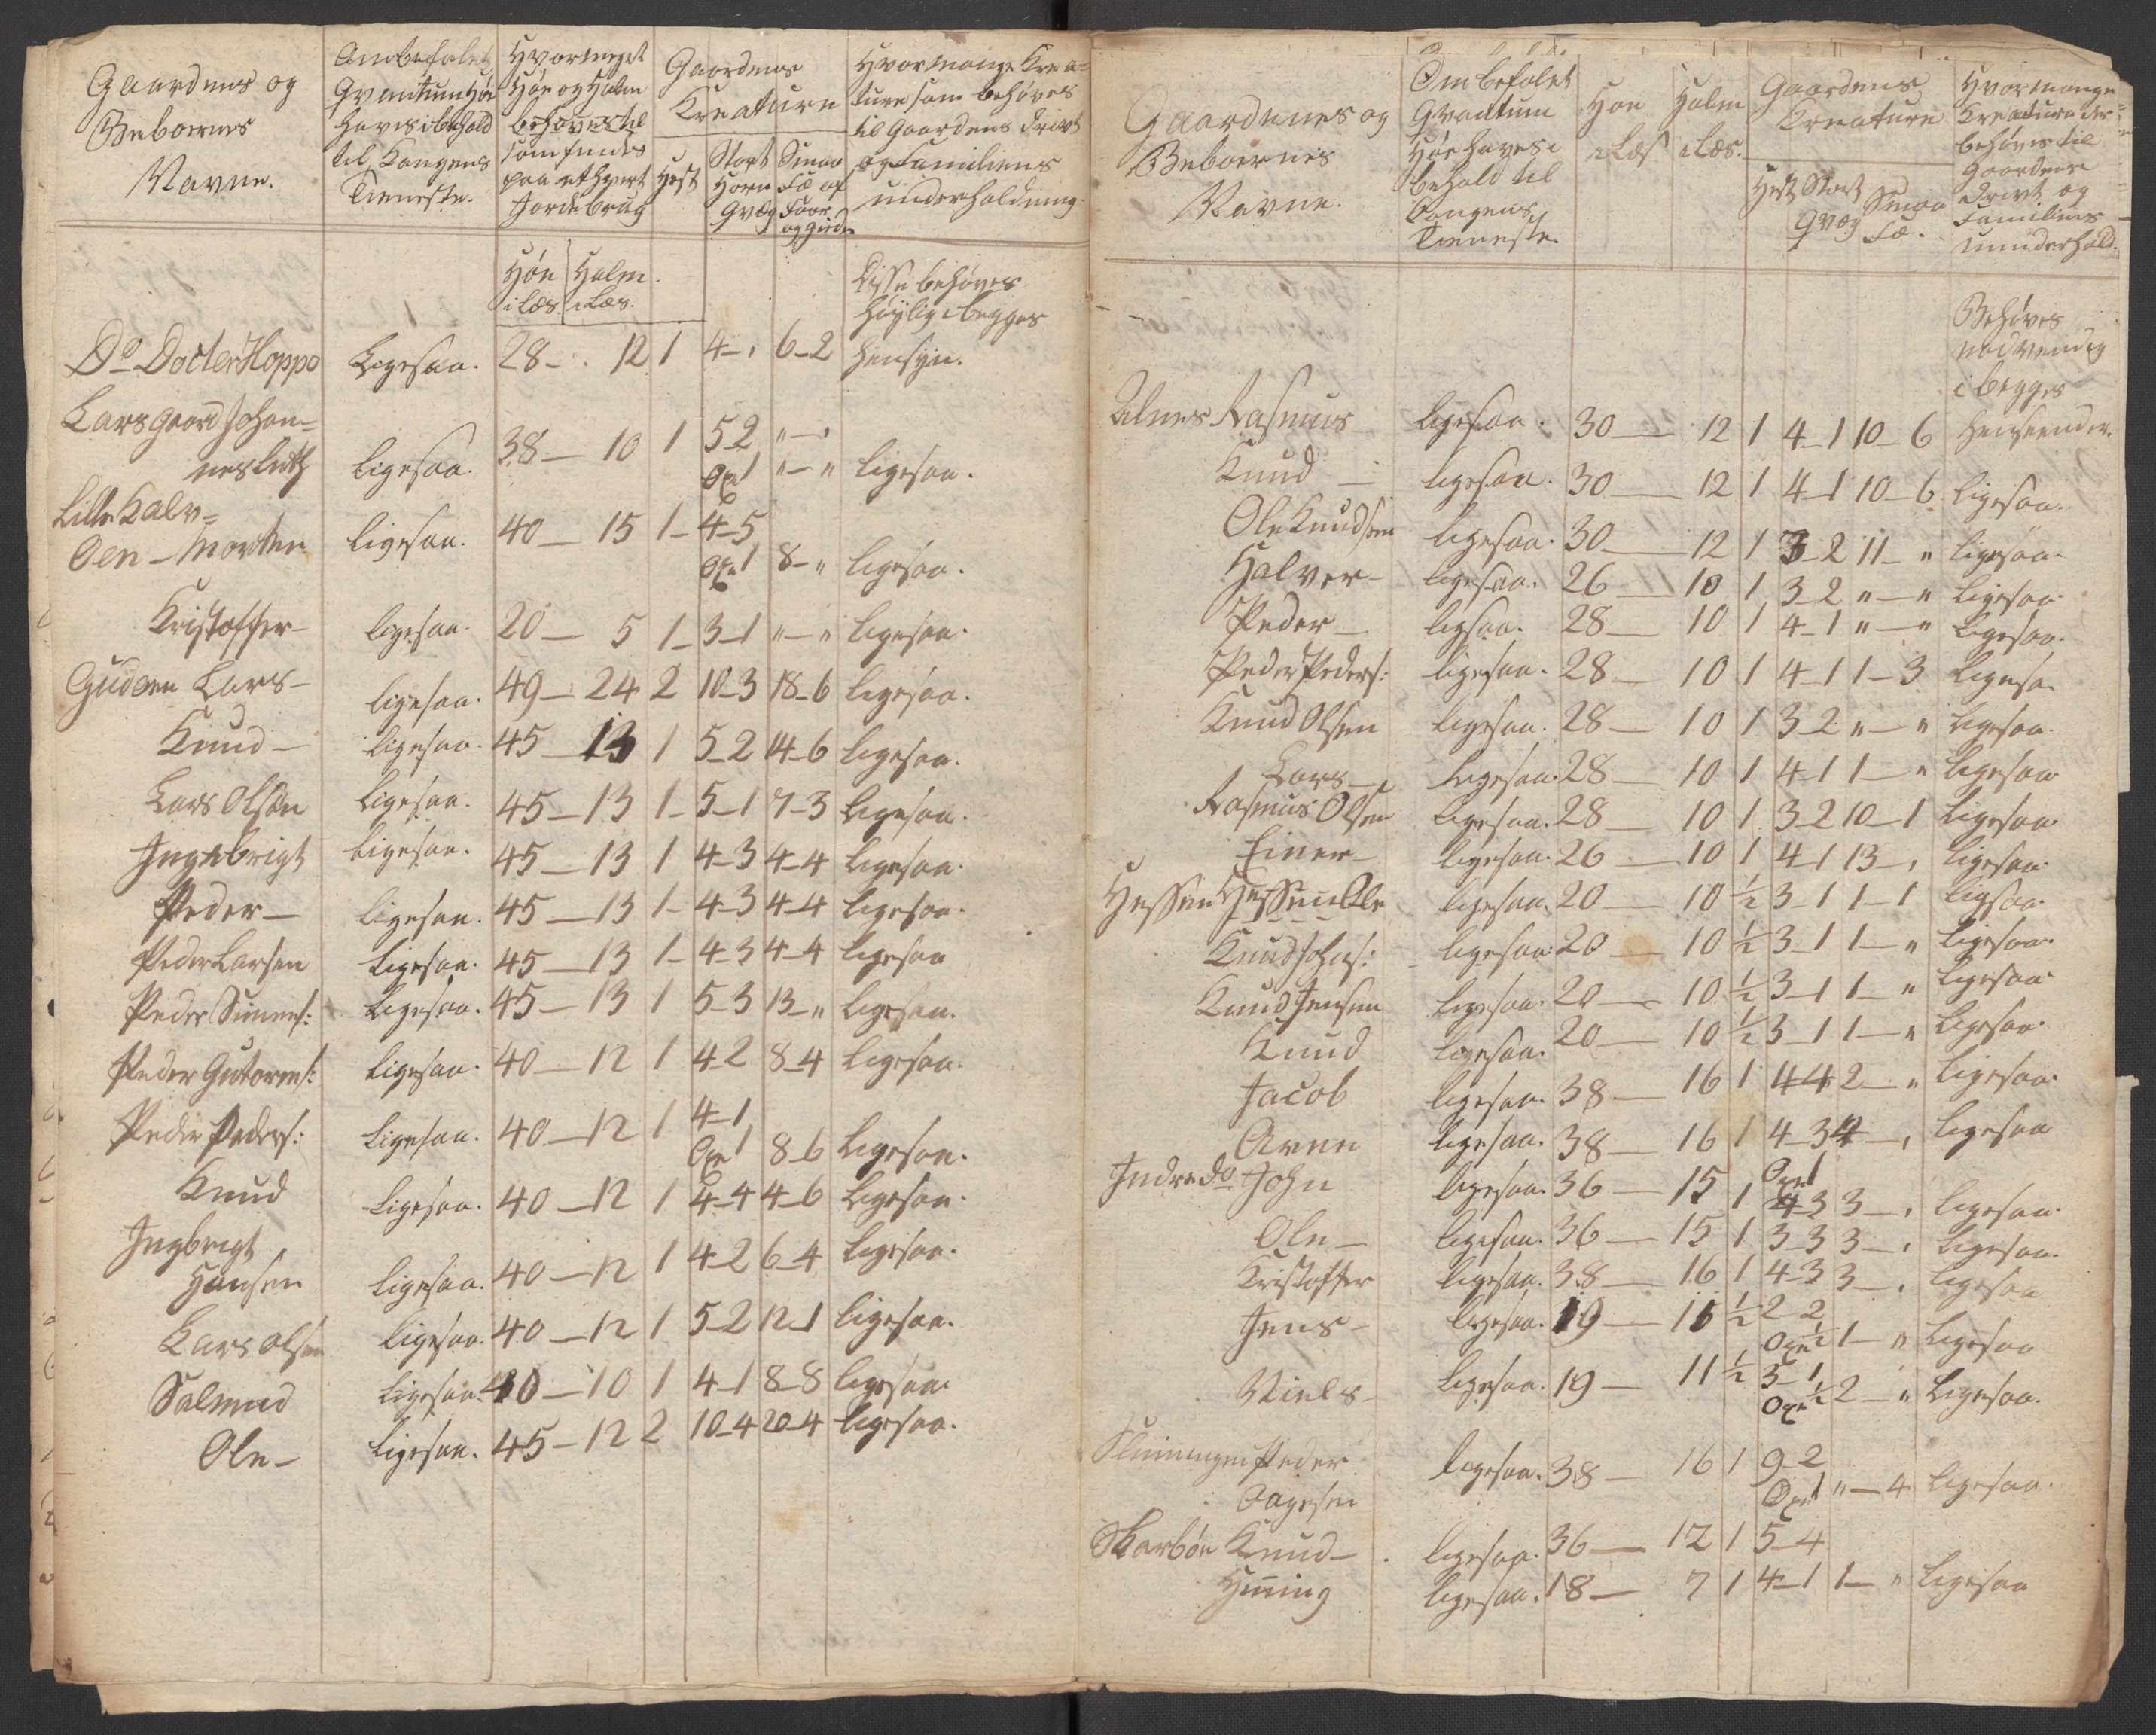 Gaardenes og
Beboernes
Navne.
Anbefalet
Qvantum Høe
haves i behold
til Kongens
Tieneste.
Hvormeget
Høe og Halm
behøves til
som findes
paa ethvert
Jordebrug
Gaardenes
Kreature
Hest
Stort
Horn
Qvæg
Smaa
Fæ af
Faar
og Gieder
Hvormange Krea=
ture som behøves
til Gaardens Drivt
og Familiens
underholdning.
Høe Halm.
i Læs. i Læs.
Disse behøves
høylig i begges
hensyn.
Do Docter Hoppe Ligesaa. 28 – 12 1 4 – 6 – 2
Lars gaard Johan=
nes Luth ligesaa. 38 – 10 1 5 2 " – "
Oxe 1 " – " ligesaa.
Lille Kalv=
Øen – Morten ligesaa. 40 – 15 1 – 4 – 5
Oxe 1 8 – " ligesaa.
Kristoffer – ligesaa. 20 – 5 1 – 3 – 1 " – " ligesaa.
Gudøen Lars – ligesaa. 49 – 24 2 10 – 3 18 – 6 ligesaa.
Knud – ligesaa. 45 – 13 1 5 – 2 14 – 6 ligesaa.
Lars Olsen ligesaa. 45 – 13 1 – 5 – 1 7 – 3 ligesaa.
Ingebrigt ligesaa. 45 – 13 1 4 – 3 4 – 4 ligesaa.
Peder – ligesaa. 45 – 13 1 – 4 – 3 4 – 4 ligesaa.
Peder Larsen ligesaa. 45 – 13 1 – 4 – 3 4 – 4 ligesaa
Peder Simens: ligesaa. 45 – 13 1 5 – 3 13 – " ligesaa.
Peder Gutorms: ligesaa. 40 – 12 1 4 – 2 8 – 4 ligesaa.
Peder Peders: ligesaa. 40 – 12 1 4 – 1
Oxe 1 8 – 6 ligesaa.
Knud ligesaa. 40 – 12 1 4 – 4 4 – 6 ligesaa.
Ingbrigt
Hansen ligesaa. 40 – 12 1 4 – 2 6 – 4 ligesaa.
Lars Olsen ligesaa. 40 – 12 1 5 – 2 12 – 1 ligesaa.
Salmund ligesaa. 40 – 10 1 4 – 1 8 – 8 ligesaa.
Ole – ligesaa. 45 – 12 2 10 – 4 20 – 4 ligesaa.
Gaardenes og
Beboernes
Navne.
Ombefalet
Qvantum
Høe haves i
behold til
Kongens
Tieneste.
Høe
i Læs
Halm
i Læs.
Gaardens
Kreature
Hest Stort
Qvæg
Smaa
Fæ.
Hvormange
Kreature der
behøves til
Gaardens
Drivt og
Familiens
underhold.
Behøves
nødvendig
i begges
Henseender.
Alnes Rasmus ligesaa. 30 – 12 1 4 – 1 10 – 6
Knud – ligesaa. 30 – 12 1 4 – 1 10 – 6 ligesaa.
Ole Knudsen ligesaa. 30 – 12 1 3 – 2 11 – " ligesaa.
Halver – ligesaa. 26 – 10 1 3 – 2 " – " ligesaa.
Peder – ligsaa. 28 – 10 1 4 – 1 " – " ligesaa.
Peder Peders: ligesaa. 28 – 10 1 4 – 1 1 – 3 ligesa.
Knud Olsen ligesaa. 28 – 10 1 3 2 " – " ligesaa.
Lars – ligesaa. 28 – 10 1 4 – 1 1 – " ligesaa
Rasmus Olsen ligesaa. 28 – 10 1 3 – 2 10 – 1 ligesaa
Einer – ligesaa. 26 – 10 1 4 – 1 13 – " ligesaa.
Hessen Hessen Ole ligesaa. 20 – 10 ½ 3 – 1 1 – 1 ligsaa.
Knud Johs: ligesaa. 20 – 10 ½ 3 – 1 1 – " ligesaa.
Knud Jensen ligesaa. 20 – 10 ½ 3 – 1 1 – " ligesaa.
Knud ligesaa. 20 – 10 ½ 3 – 1 1 – " ligesaa.
Jacob ligesaa. 38 – 16 1 4 – 4 2 – " ligesaa.
Arne ligesaa. 38 – 16 1 4 – 3 4 – " ligesaa
Indre do John ligesaa. 36 – 15 1 Oxe 1
4 – 3 3 – " ligesaa.
Ole – ligesaa. 36 – 15 1 3 – 3 3 – " ligesaa.
Kristoffer ligesaa. 38 – 16 1 4 – 3 3 – " ligesaa
Jens – ligesaa. 19 – 11 ½ 2 – 2
Oxe ½ 1 – " ligesaa
Niels – ligesaa. 19 – 11 ½ 3 – 1
Oxe ½ 2 – " ligesaa.
Peder
Aagesen ligesaa. 38 – 16 1 9 – 2
Oxe 1 " – 4 ligesaa.
Skarbøe Knud – ligesaa. 36 – 12 1 5 – 4
Hening ligesaa. 18 – 7 1 4 – 1 1 – " ligesaa